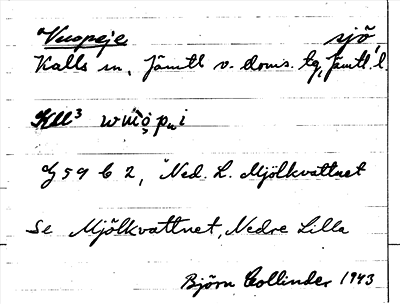 Vuopeje sjö
Kalls sn, Jämtl v. doms. lg, Jämtl. l
Kll³
Gg 59 C 2, Ned. L. Mjölkvattnet
Se Mjölkvattnet, Nedre Lilla
Björn Collinder 1943